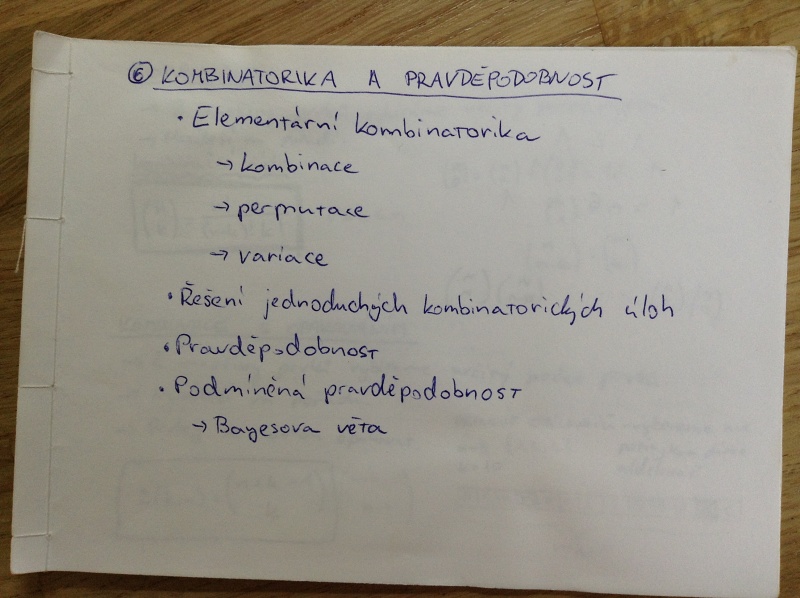 ⑥ KOMBINATORIKA A PRAVDĚPODOBNOST
• Elementární kombinatorika
→ kombinace
→ permutace
→ variace
• Řešení jednoduchých kombinatorických úloh
• Pravděpodobnost
• Podmíněná pravděpodobnost
→ Bayesova věta